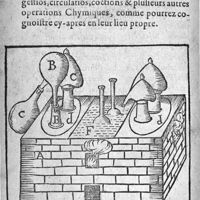 gestiōs, circulatiōs, coctions & plusieurs autres
operations Chymiques, comme pourrez co-
gnoistre cy-apres en leur lieu propre.
B
C
C
d
F
d
A